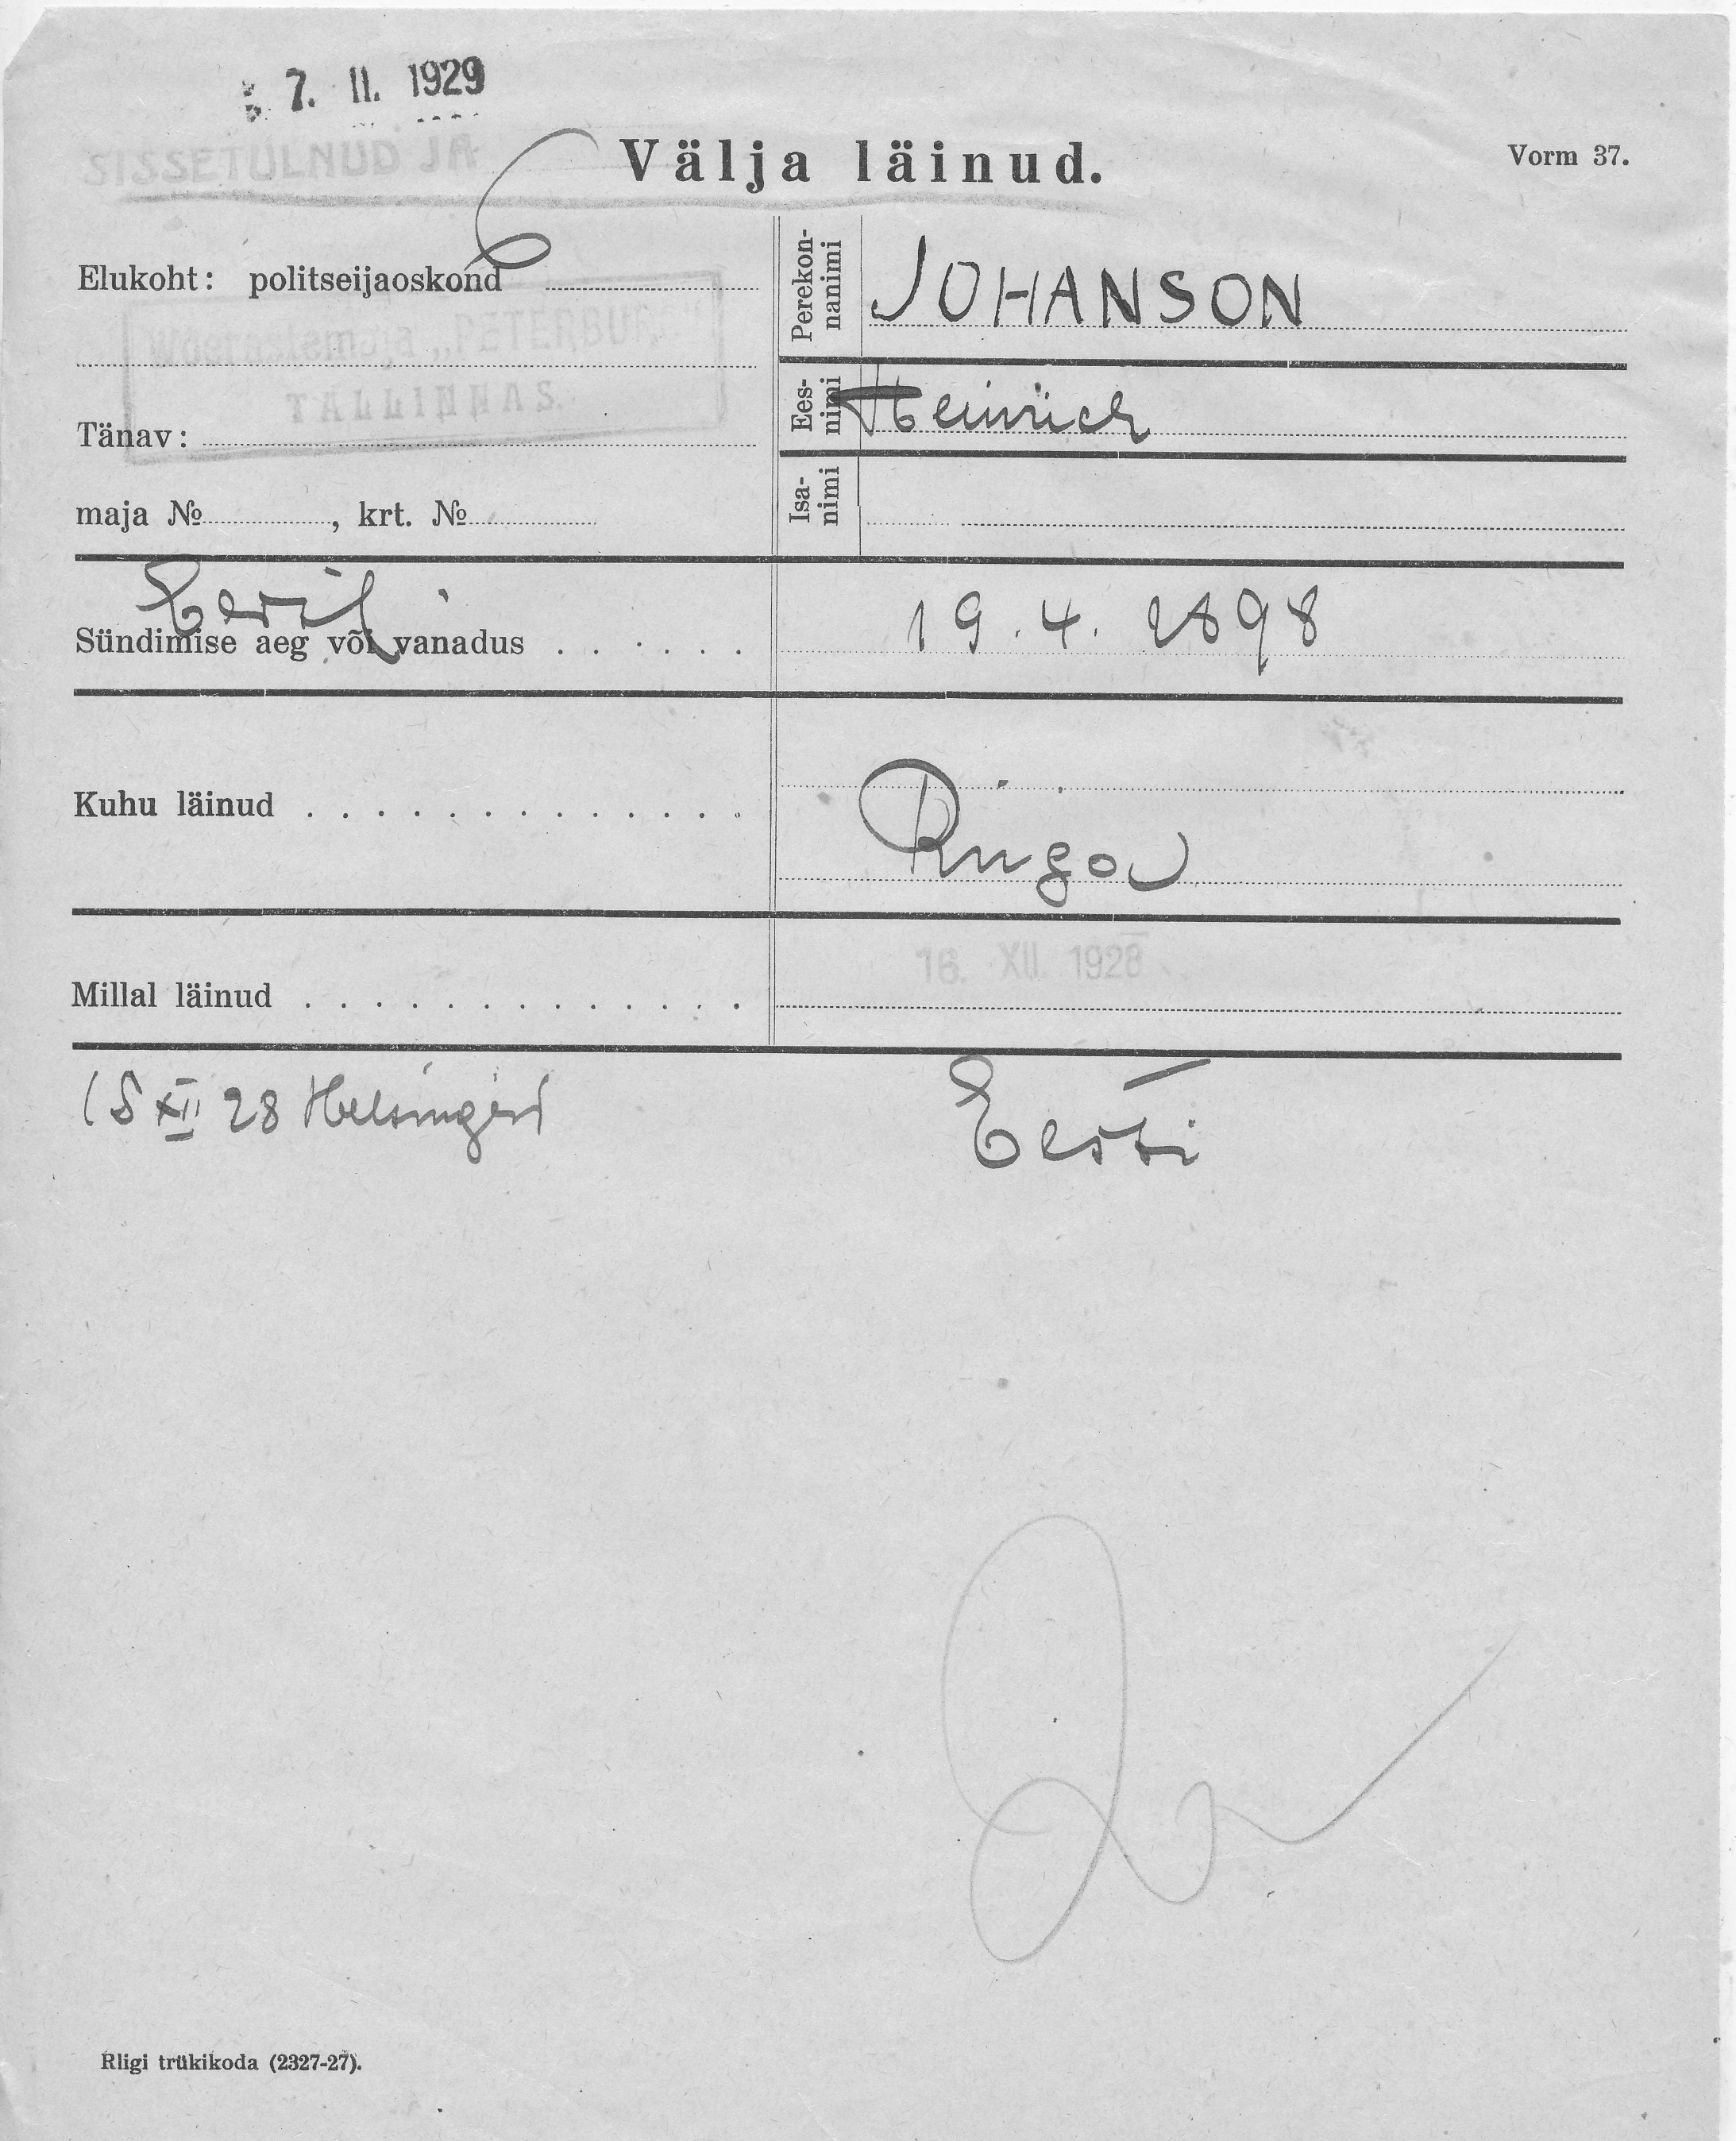 7. II. 1929
SISSETULNUD JA
Välja läinud.
Vorm 37.
Elukoht: politseijaoskond
6
"PETERBURG"
TALLINNAS.
Tänav:
maja № , krt. №
Perekon-
nanimi
JOHANSON
Ees-
nimi
Heinrich
Isa-
nimi
Sündimise aeg või vanadus
19. 4. 1898
Kuhu läinud
Riiga
Millal läinud
16. XII. 1928
15 XII 28 Helsingist
Eesti
Riigi trükikoda (2327-27).